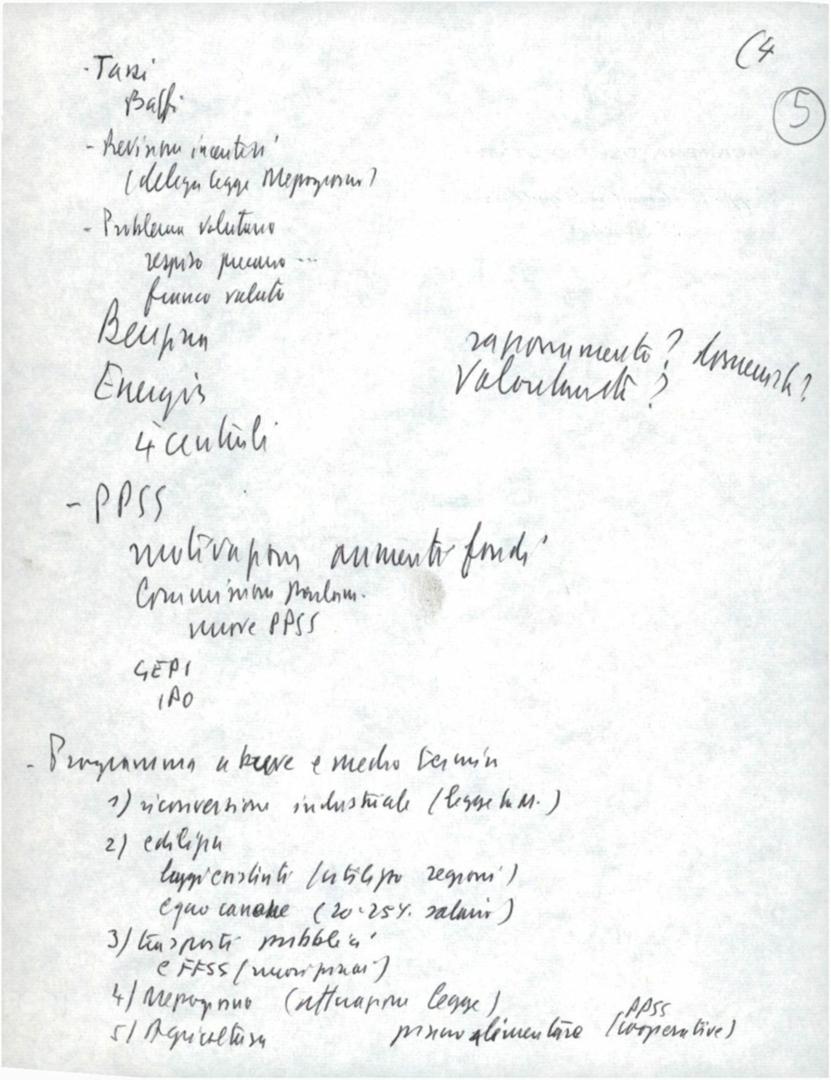 (4
5
- Tassi
Baffi
- Revisione incentivi
(delega legge Mezzogiorno)
- Problema valutario
respiro
franco valuta
Benzina
razionamento? domenica?
Energia
Valontaria?
4 centrali
- PPSS
motivazioni aumento fondi
Commissione Parlam.
nuove PPSS
GEPI
IPO
- Programma a breve e medio termine
1) riconversione industriale (legge
2) edilizia
leggi esistenti (utilizzo regioni)
equo canone (20-25% salario)
3) trasporti pubblici
e FFSS (nuovi
4) Mezzogiorno (attuazione legge)
PPSS
5) Agricoltura piano alimentare (cooperative)